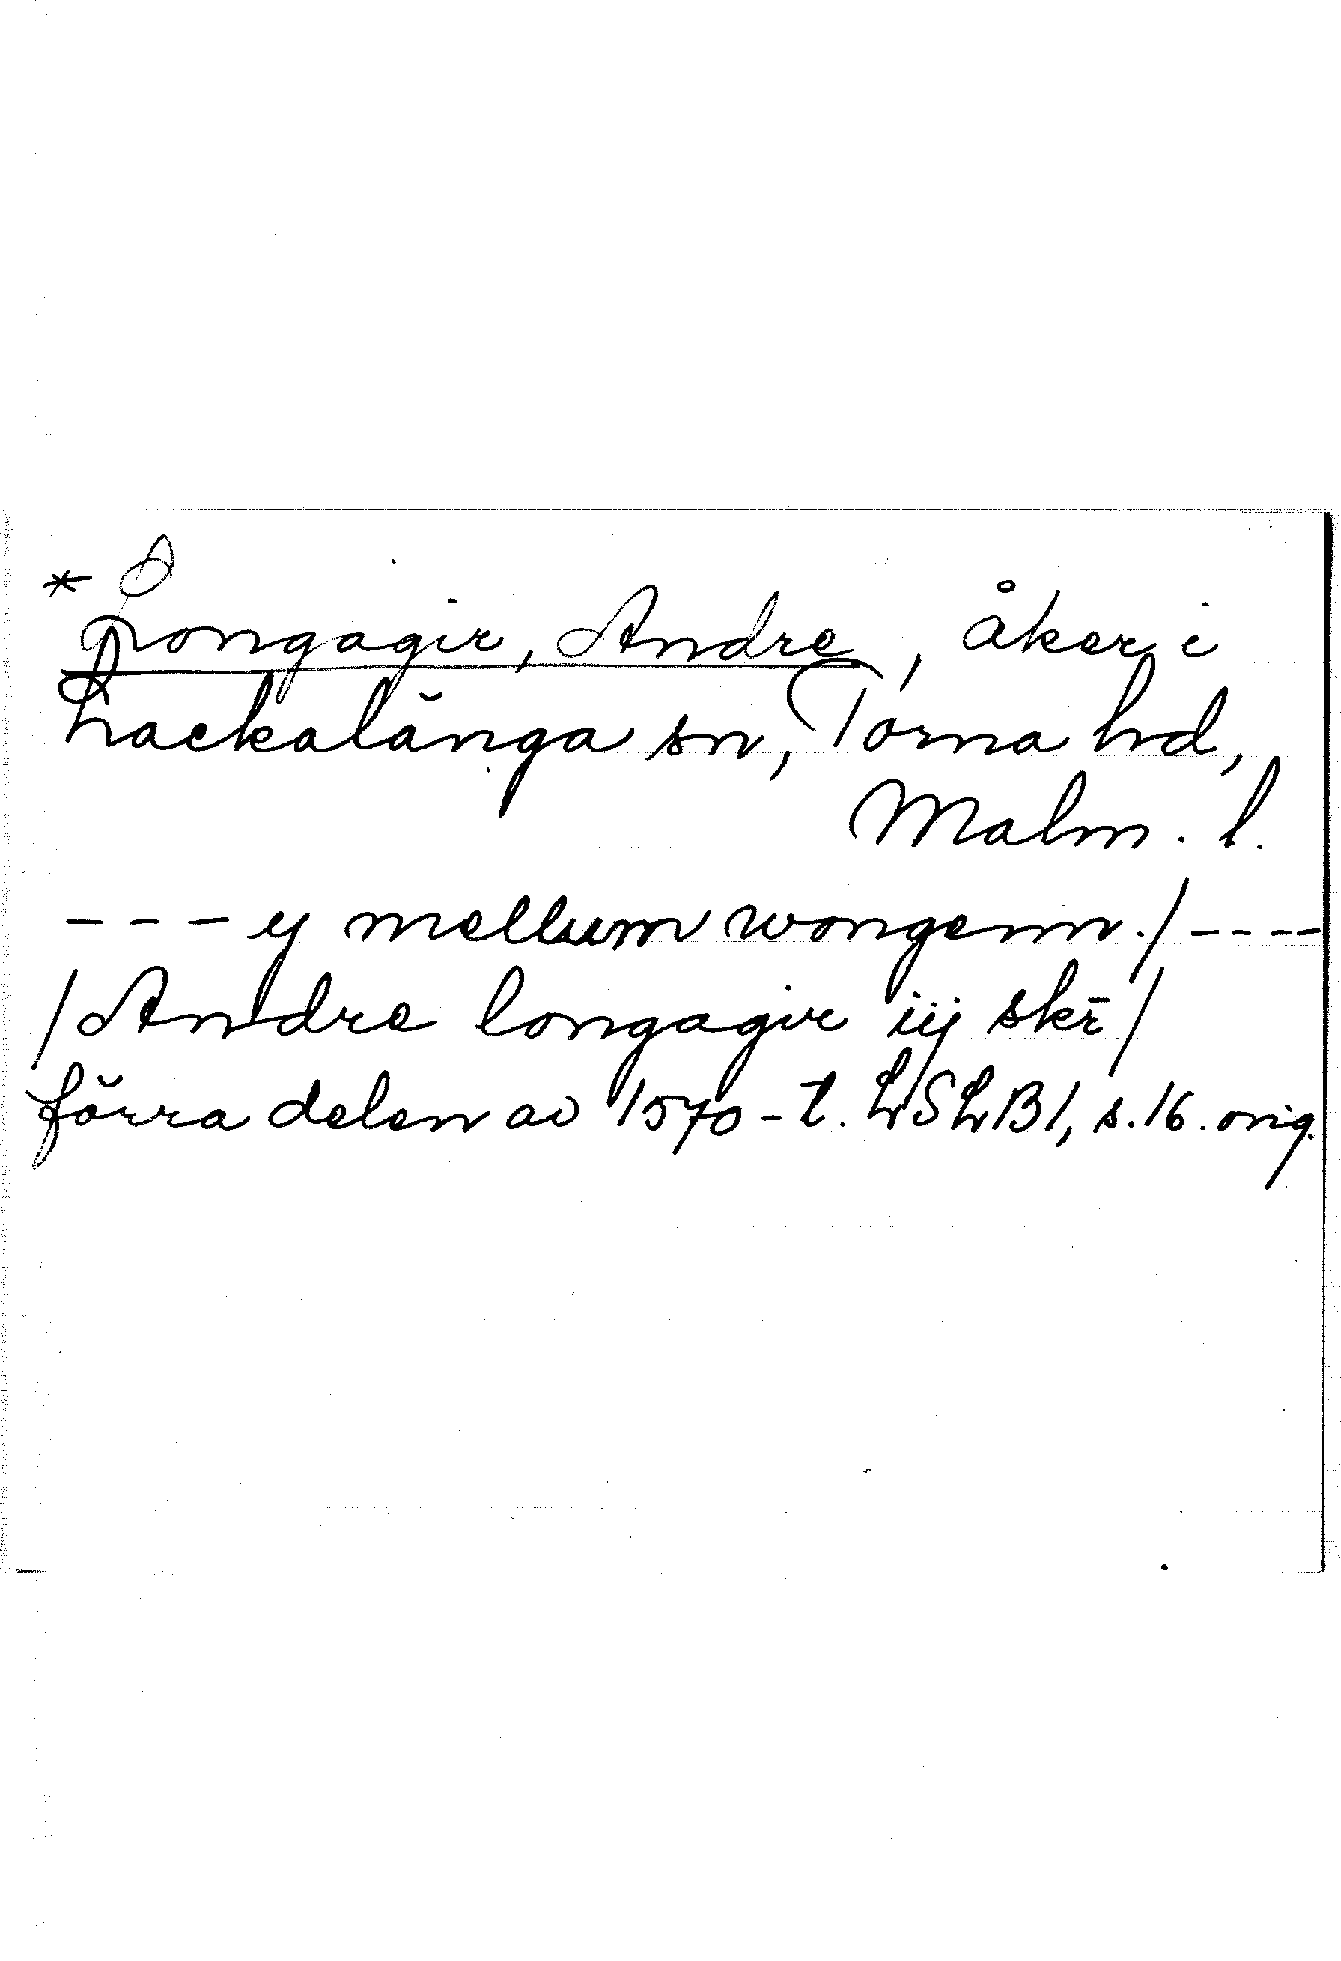 * Longagir, Andre, åker i
Lackalänga sn, Torna hd,
Malm. l.
- - - ij mellum wongenn. / - - - -
/ Andre longagir iij skr̄ /
förra delen av 1570-t. LSLB1, s. 16. orig.